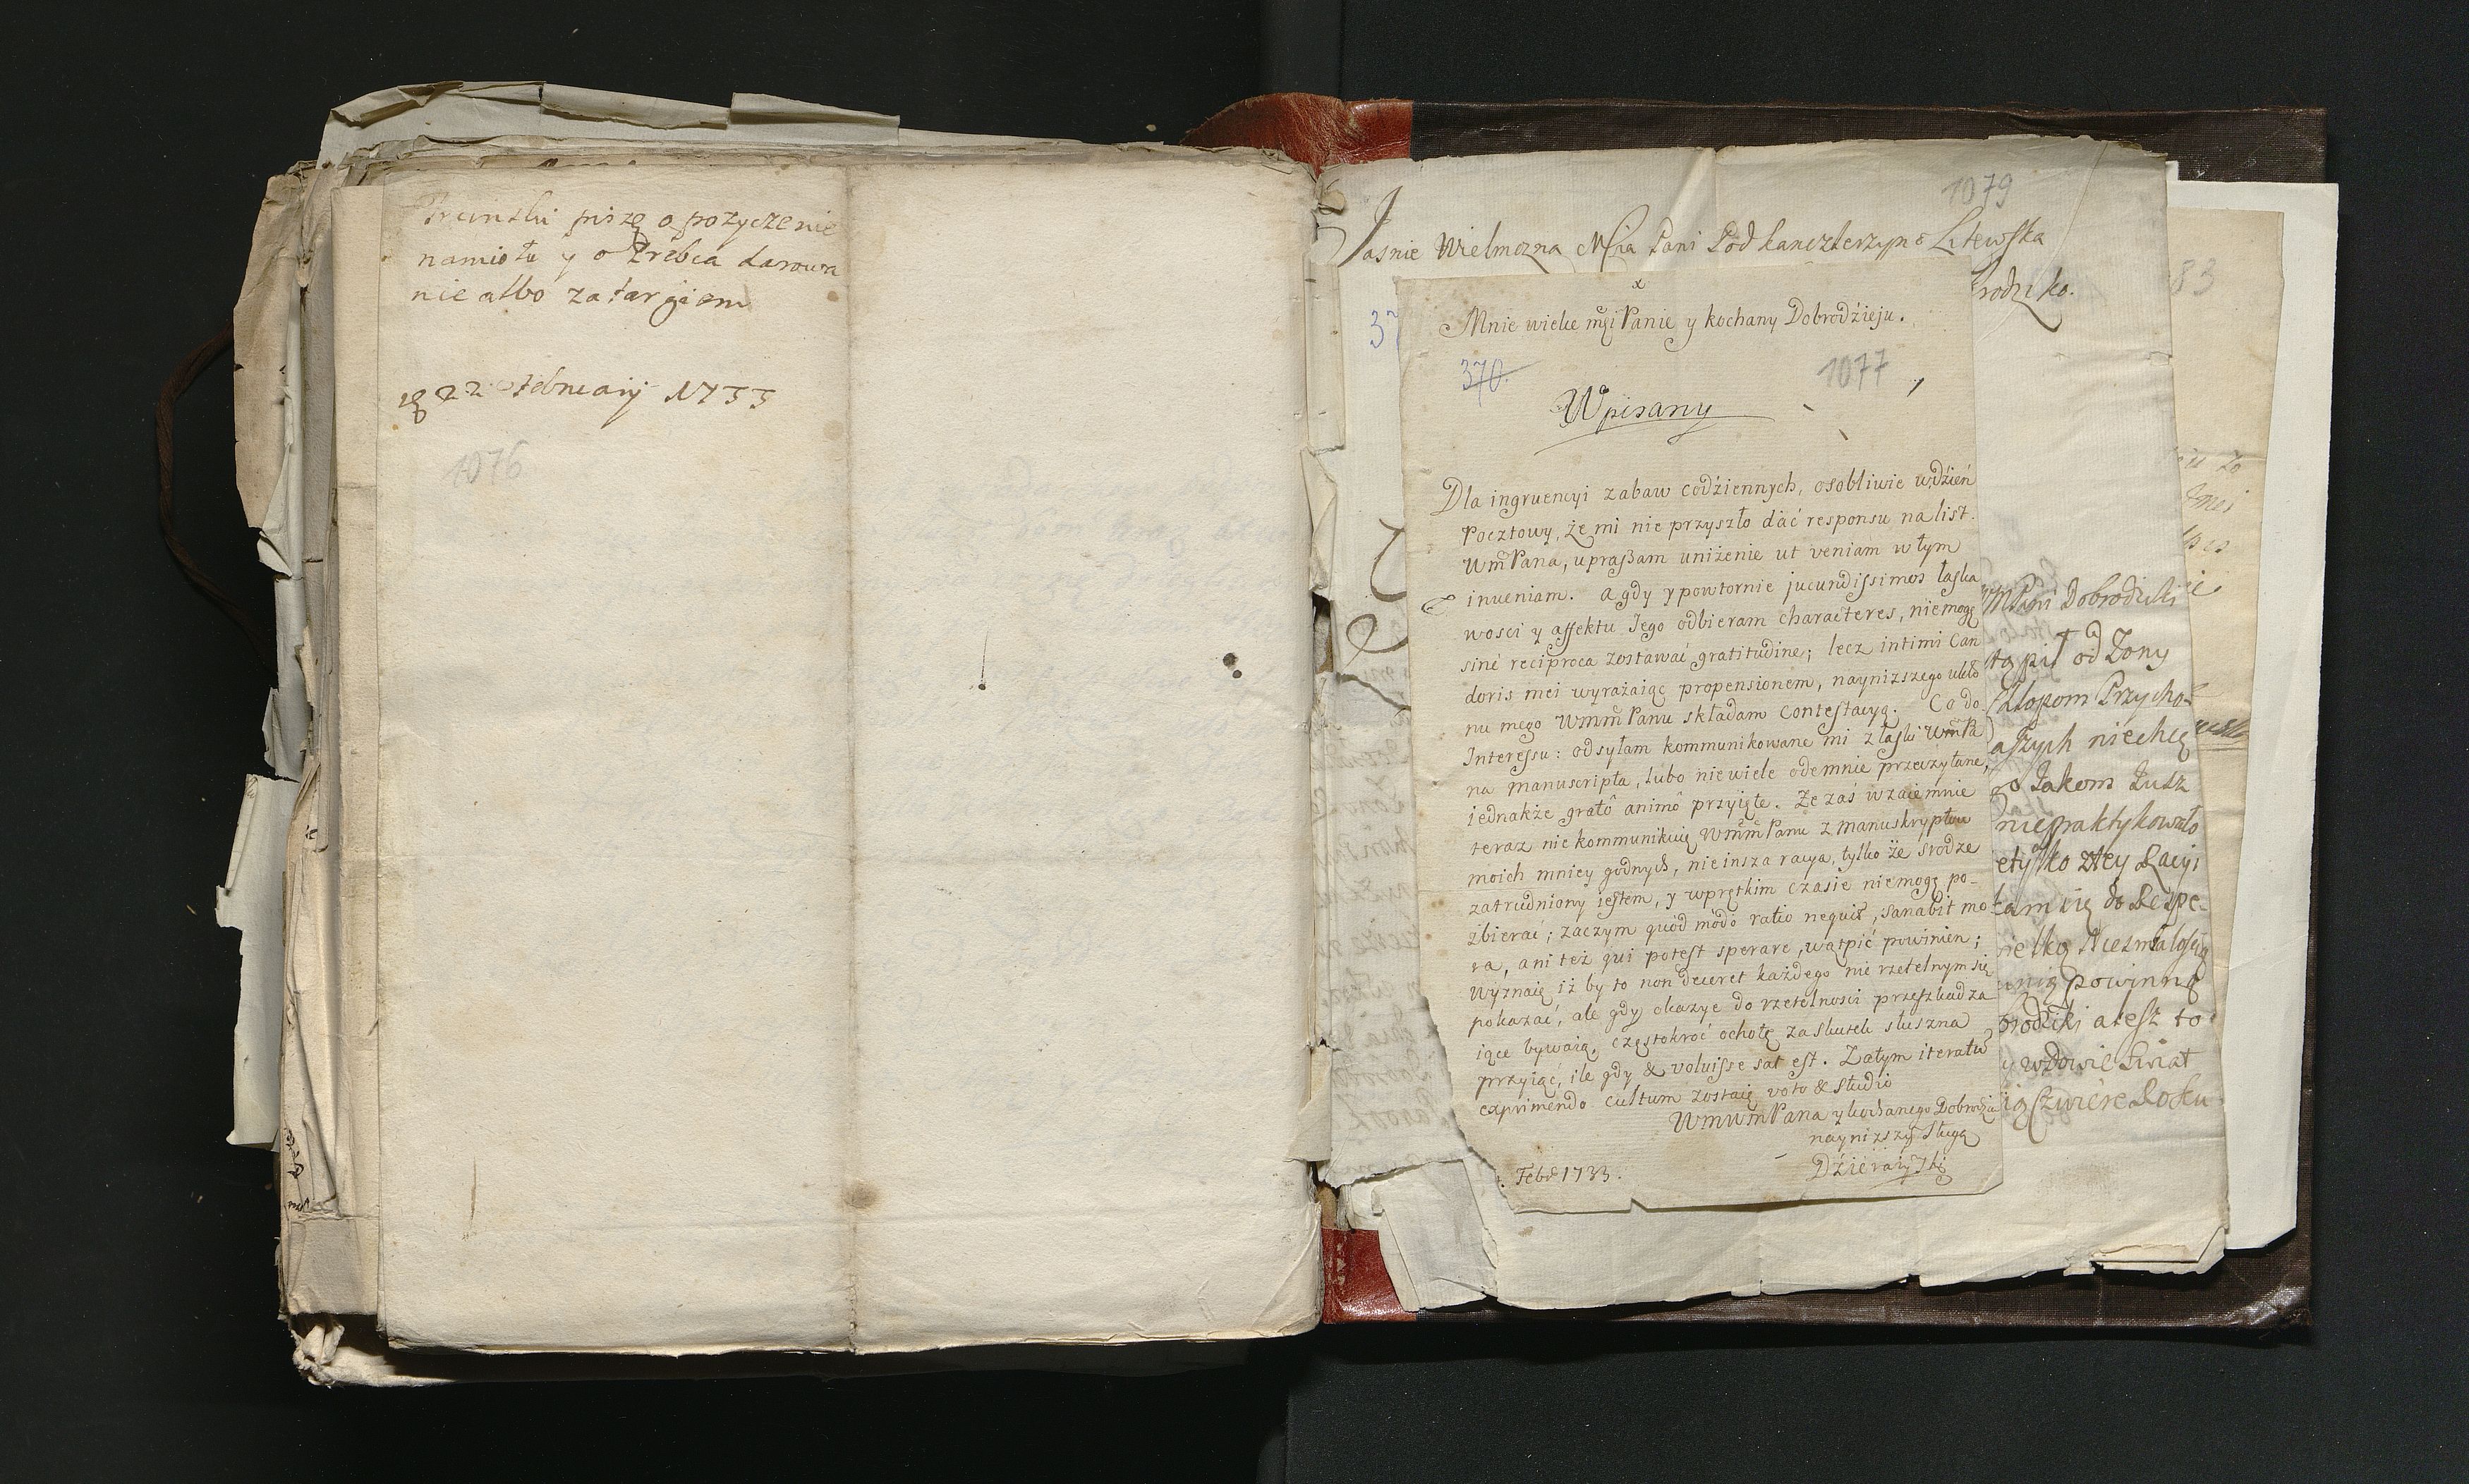 pisze o pozyczenie
namiotu y o Zrebca darowa
nie albo za targiem
22 Februarij 1733
1076
1079
Jasnie Wielmozna Mcia Pani Podkanclerzyno Litewska
rodziko.
83
Mnie wielce mci Panie y kochany Dobrodźieju.
370.
1077
Wpisany
Dla ingruencyi zabaw codźiennych, osobliwie w dźień
Pocztowy, że mi nie przyszło dać responsu na list
WmPana, upraszam uniżenie ut veniam w tym
inveniam. A gdy y powtornie jucundissimos łaska
wosci y affektu Jego odbieram characteres, niemogę
sinè reciproca zostawać gratitudine; lecz intimi Can
doris mei wyrażaiąc propensionem, nayniższego ukło
nu mego WmmPanu składam contestacyą. Co do
Interessu: odsyłam kommunikowane mi z łaski WmPa
na manuscripta, lubo nie wiele odemnie przeczytane,
iednakże gratô animô przyięte. Że zaś wzaiemnie
teraz nie kommunikuię WmmPanu z manuskryptow
moich mniey godnych, nie insza racya, tylko że srodze
zatrudniony iestem, y w prętkim czasie niemogę po-
zbierać; zaczym quod modò ratio nequit, sanabit mo
ra, ani też qui potest sperare, wątpić powinien;
Wyznaię iż by to non deceret każdego nie rzetelnym się
pokazać, ale gdy okazye do rzetelnosci przeszkadza
iące bywaią, częstokroć ochotę za skutek słuszna
przyiąć, ile gdy & voluisse sat est. Zatym iteratù
exprimendo cultum zostaię voto & studio
WmWmPana y kochanego Dobrodźie
nayniższy Sługa
Febr 1733.
WMPani Dobrodziki
tąpił od Zony
Chłopom Przycho-
aszych niechcę
niepraktykowało
etylko złey Racyi
tam się do Respe-
powinną
y wdowie Swiat